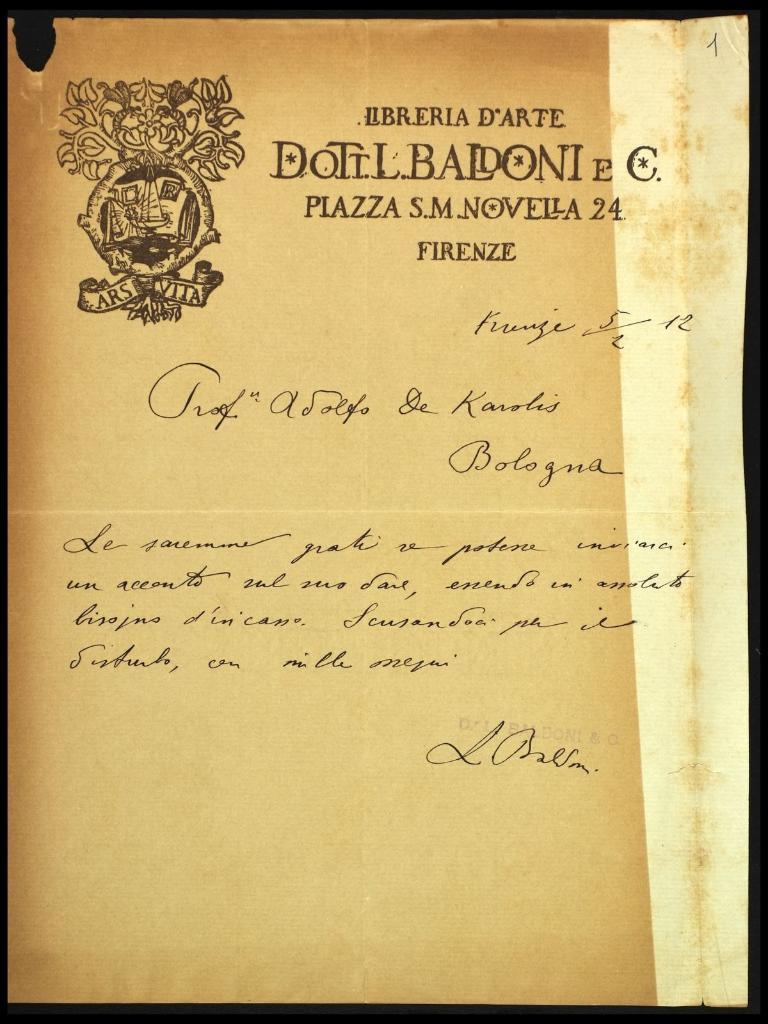 1
LIBRERIA D'ARTE
DOTT. L. BALDONI E C.
PIAZZA S. M. NOVELLA 24
FIRENZE
ARS VITA
Firenze 5/2 12
Prof.r Adolfo De Karolis
Bologna
Le saremmo grati se potesse inviarci
un acconto sul suo dare, essendo in assoluto
bisogno d'incasso. Scusandoci per il
disturbo, con mille ossequi
BALDONI & C
L Baldoni